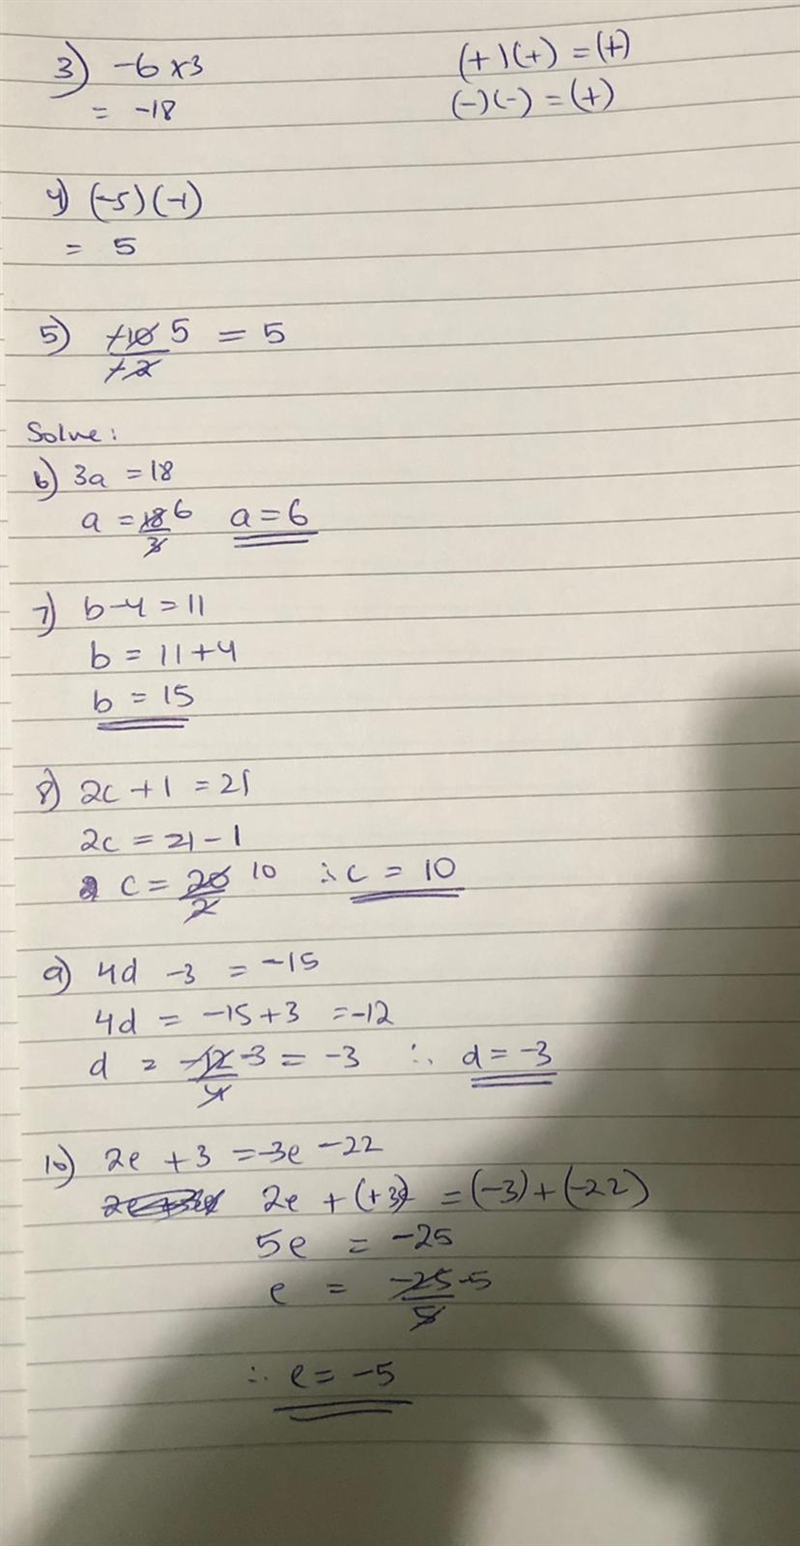 3) -6 x 3 (+)(+) = (+)
= -18 (-)(-) = (+)
4) (-5)(-1)
= 5
5) -10 5 = 5
-2
Solve:
6) 3a = 18
a = 18 6 a = 6
3
7) b - 4 = 11
b = 11 + 4
b = 15
8) 2c + 1 = 21
2c = 21 - 1
c = 20 10 ∴ c = 10
2
9) 4d - 3 = -15
4d = -15 + 3 = -12
d = -12 -3 = -3 ∴ d = -3
4
10) 2e + 3 = -3e - 22
2e + (+3e) = (-3) + (-22)
5e = -25
e = -25 -5
5
∴ e = -5